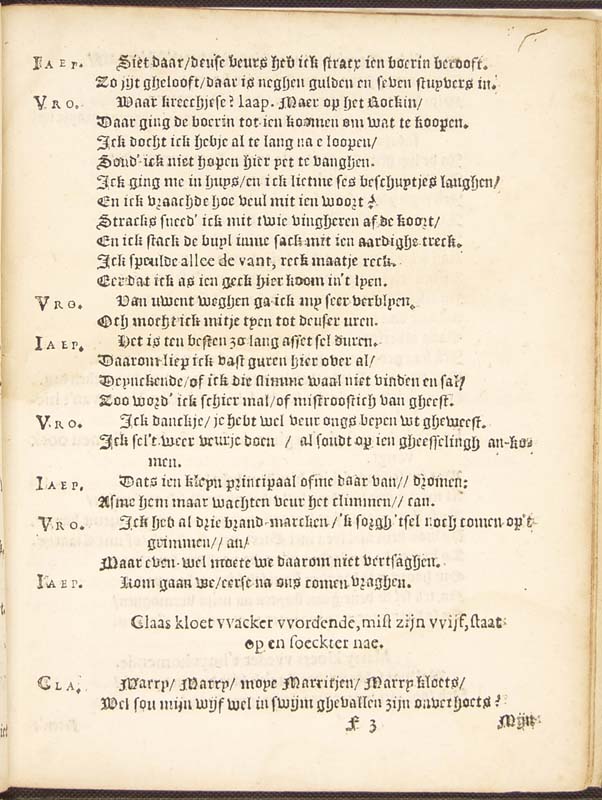 IAEP. Siet daar/deuse beurs heb ick stracx ien boerin berooft.
Zo jyt ghelooft/daar is neghen gulden en seven stuyvers in.
VRO. Waar kreechjese? laap. Maer op het Rockin/
Daar ging de boerin tot ien kramen om wat te koopen.
Ick docht ick hebje al te lang na e loopen/
Soud' ick niet hopen hier yet te vanghen.
Ick ging me in huys/en ick lietme ses beschuytjes langhen/
En ick vraachde hoe veul mit ien woort?
Stracks sneed' ick mit twie vingheren af de koort/
En ick stack de buyl inme sack mit ien aardighe treck.
Ick speulde allee de vant, reck maatje reck.
Eer dat ick as ien geck hier koom in't lyen.
VRO. Van uwent weghen ga ick my seer verblyen.
Och mocht ick mitje tyen tot deuser uren.
IAEP. Het is ten besten zo lang asset sel duren.
Daarom liep ick vast guren hier over al/
Deynckende/of ick die slimme waal niet vinden en sal?
Zoo word' ick schier mal/of mistroostich van gheest.
VRO. Ick danckje/je hebt wel veur ongs beyen wt gheweest.
Ick sel't weer veurje doen / al soudt op ien gheesselingh an-ko-
men.
IAEP. Dats ien kleyn principaal ofme daar van// dromen:
Asme hem maar wachten veur het climmen// can.
VRO. Ick heb al drie brand-marcken/'k sorgh'tsel noch comen op't
grimmen// an/
Maar even-wel moete we daarom niet vertsaghen.
IAEP. Kom gaan we/eerse na ons comen vraghen.
Claas kloet vvacker vvordende, mist zijn vvijf, staat
op en soeckter nae.
CLA. Marry/ Marry/ moye Marritjen/ Marry kloets/
Wel sou mijn wijf wel in swijm ghevallen zijn onverhoets?
F 3 Mijn